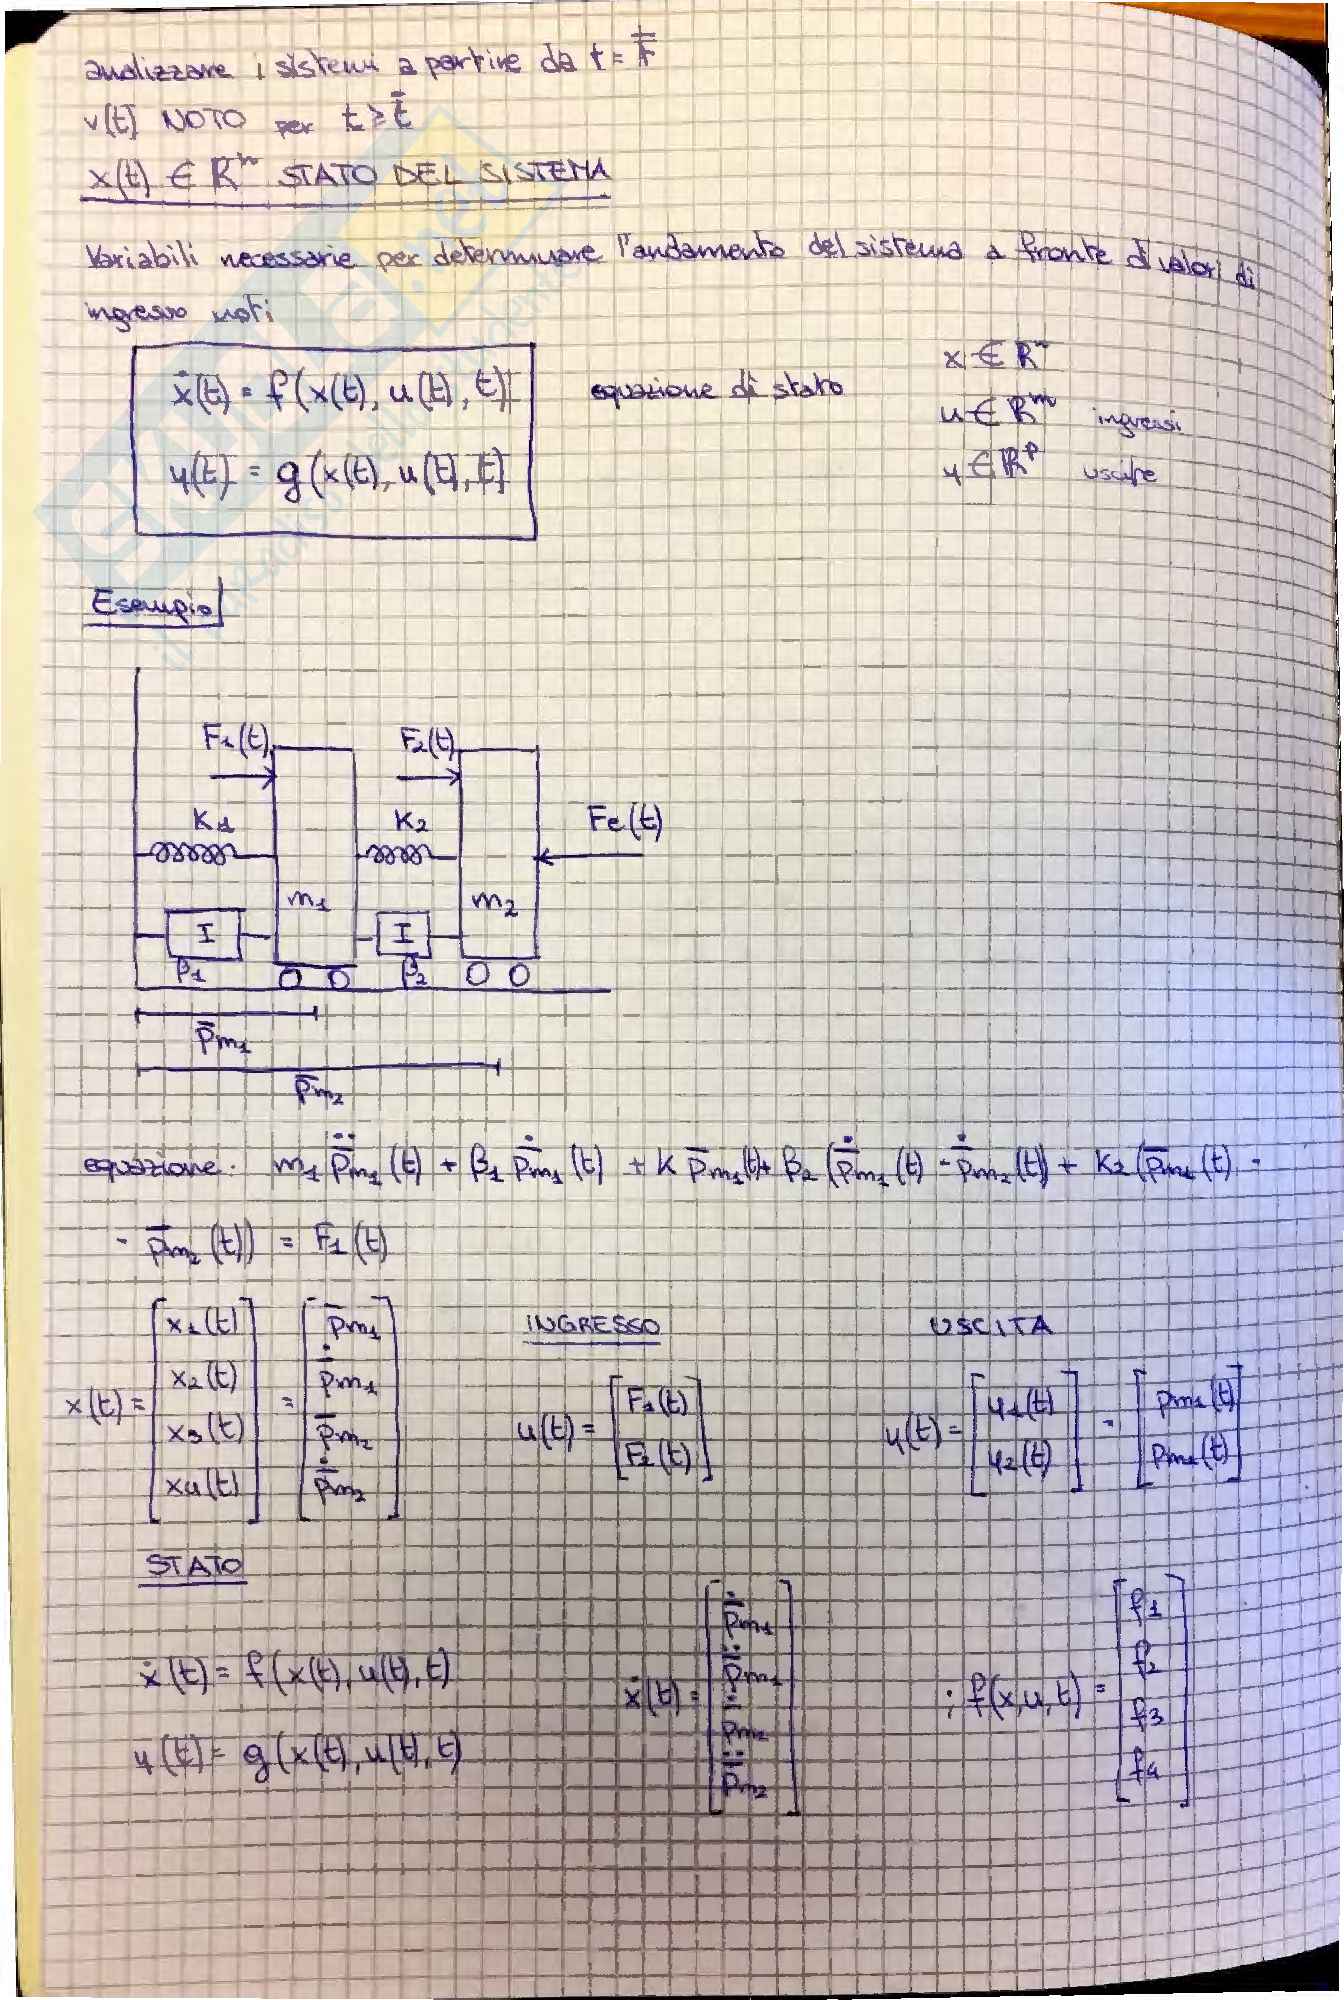 analizzare i sistemi a partire da t = t̄
v(t) NOTO per t ≥ t̄
x(t) ∈ ℝⁿ STATO DEL SISTEMA
Variabili necessarie per determinare l'andamento del sistema a fronte di valori di
ingresso noti
ẋ(t) = f(x(t), u(t), t)
equazione di stato
y(t) = g(x(t), u(t), t)
x ∈ ℝⁿ
u ∈ ℝᵐ ingressi
y ∈ ℝᵖ uscite
Esempio
F₁(t) F₂(t)
K₁ K₂ Fe(t)
m₁ m₂
I I
β₁ β₂
p̄m₁
p̄m₂
equazione: m₁ p̄̈m₁(t) + β₁ p̄̇m₁(t) + K p̄m₁(t) + β₂ (p̄̇m₁(t) - p̄̇m₂(t)) + K₂ (p̄m₁(t) -
- p̄m₂(t)) = F₁(t)
x(t) = [x₁(t) x₂(t) x₃(t) x₄(t)] = [p̄m₁ p̄̇m₁ p̄m₂ p̄̇m₂]
INGRESSO
u(t) = [F₁(t) F₂(t)]
USCITA
y(t) = [y₁(t) y₂(t)] = [pm₁(t) pm₁(t)]
STATO
ẋ(t) = f(x(t), u(t), t)
y(t) = g(x(t), u(t), t)
ẋ(t) = [p̄̇m₁ p̄̈m₁ p̄̇m₂ p̄̈m₂] ; f(x,u,t) = [f₁ f₂ f₃ f₄]